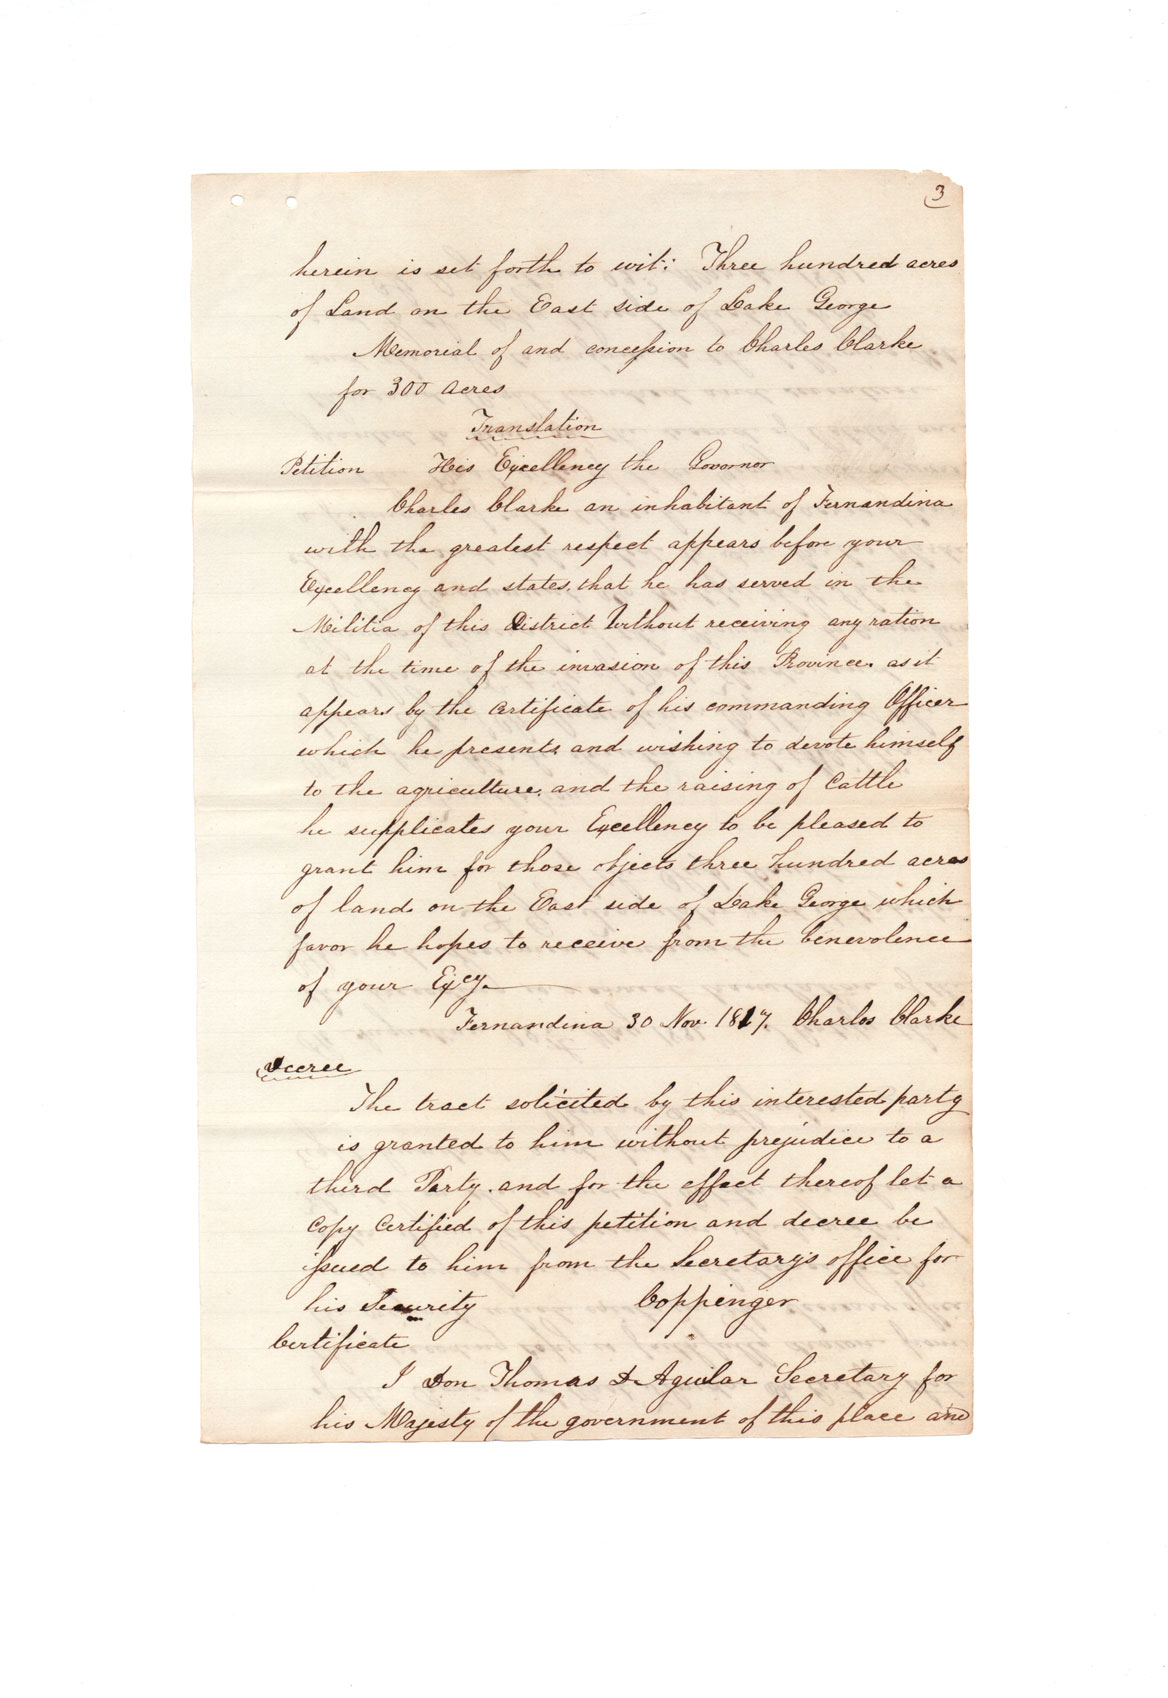 3
herein is set forth to wit: Three hundred acres
of Land on the East side of Lake George
Memorial of and concession to Charles Clarke
for 300 acres
Translation
Petition His Excellency the Governor
Charles Clarke an inhabitant of Fernandina
with the greatest respect appears before your
Excellency and states, that he has served in the
Militia of this District Without receiving any ration
at the time of the invasion of this Province, as it
appears by the Certificate of his commanding Officer
which he presents and wishing to devote himself
to the agriculture, and the raising of Cattle
he supplicates your Excellency to be pleased to
grant him for those objects three hundred acres
of land on the East side of Lake George which
favor he hopes to receive from the benevolence
of your Excy.
Fernandina 30 Nov. 1817. Charles Clarke
Decree
The tract solicited by this interested party
is granted to him without prejudice to a
third Party. and for the effect thereof let a
Copy Certified of this petition and decree be
issued to him from the Secretary's office for
his Security Coppinger
Certificate
I Don Thomas D Aguilar Secretary for
his Majesty of the government of this place and